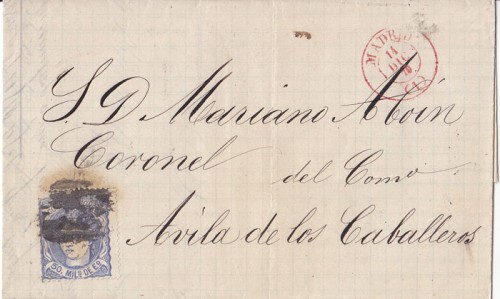 MADRID
14
DIC
(1)
S D Mariano Aboin
Coronel
del Como
Avila de los Caballeros
50 MILS DE Eº